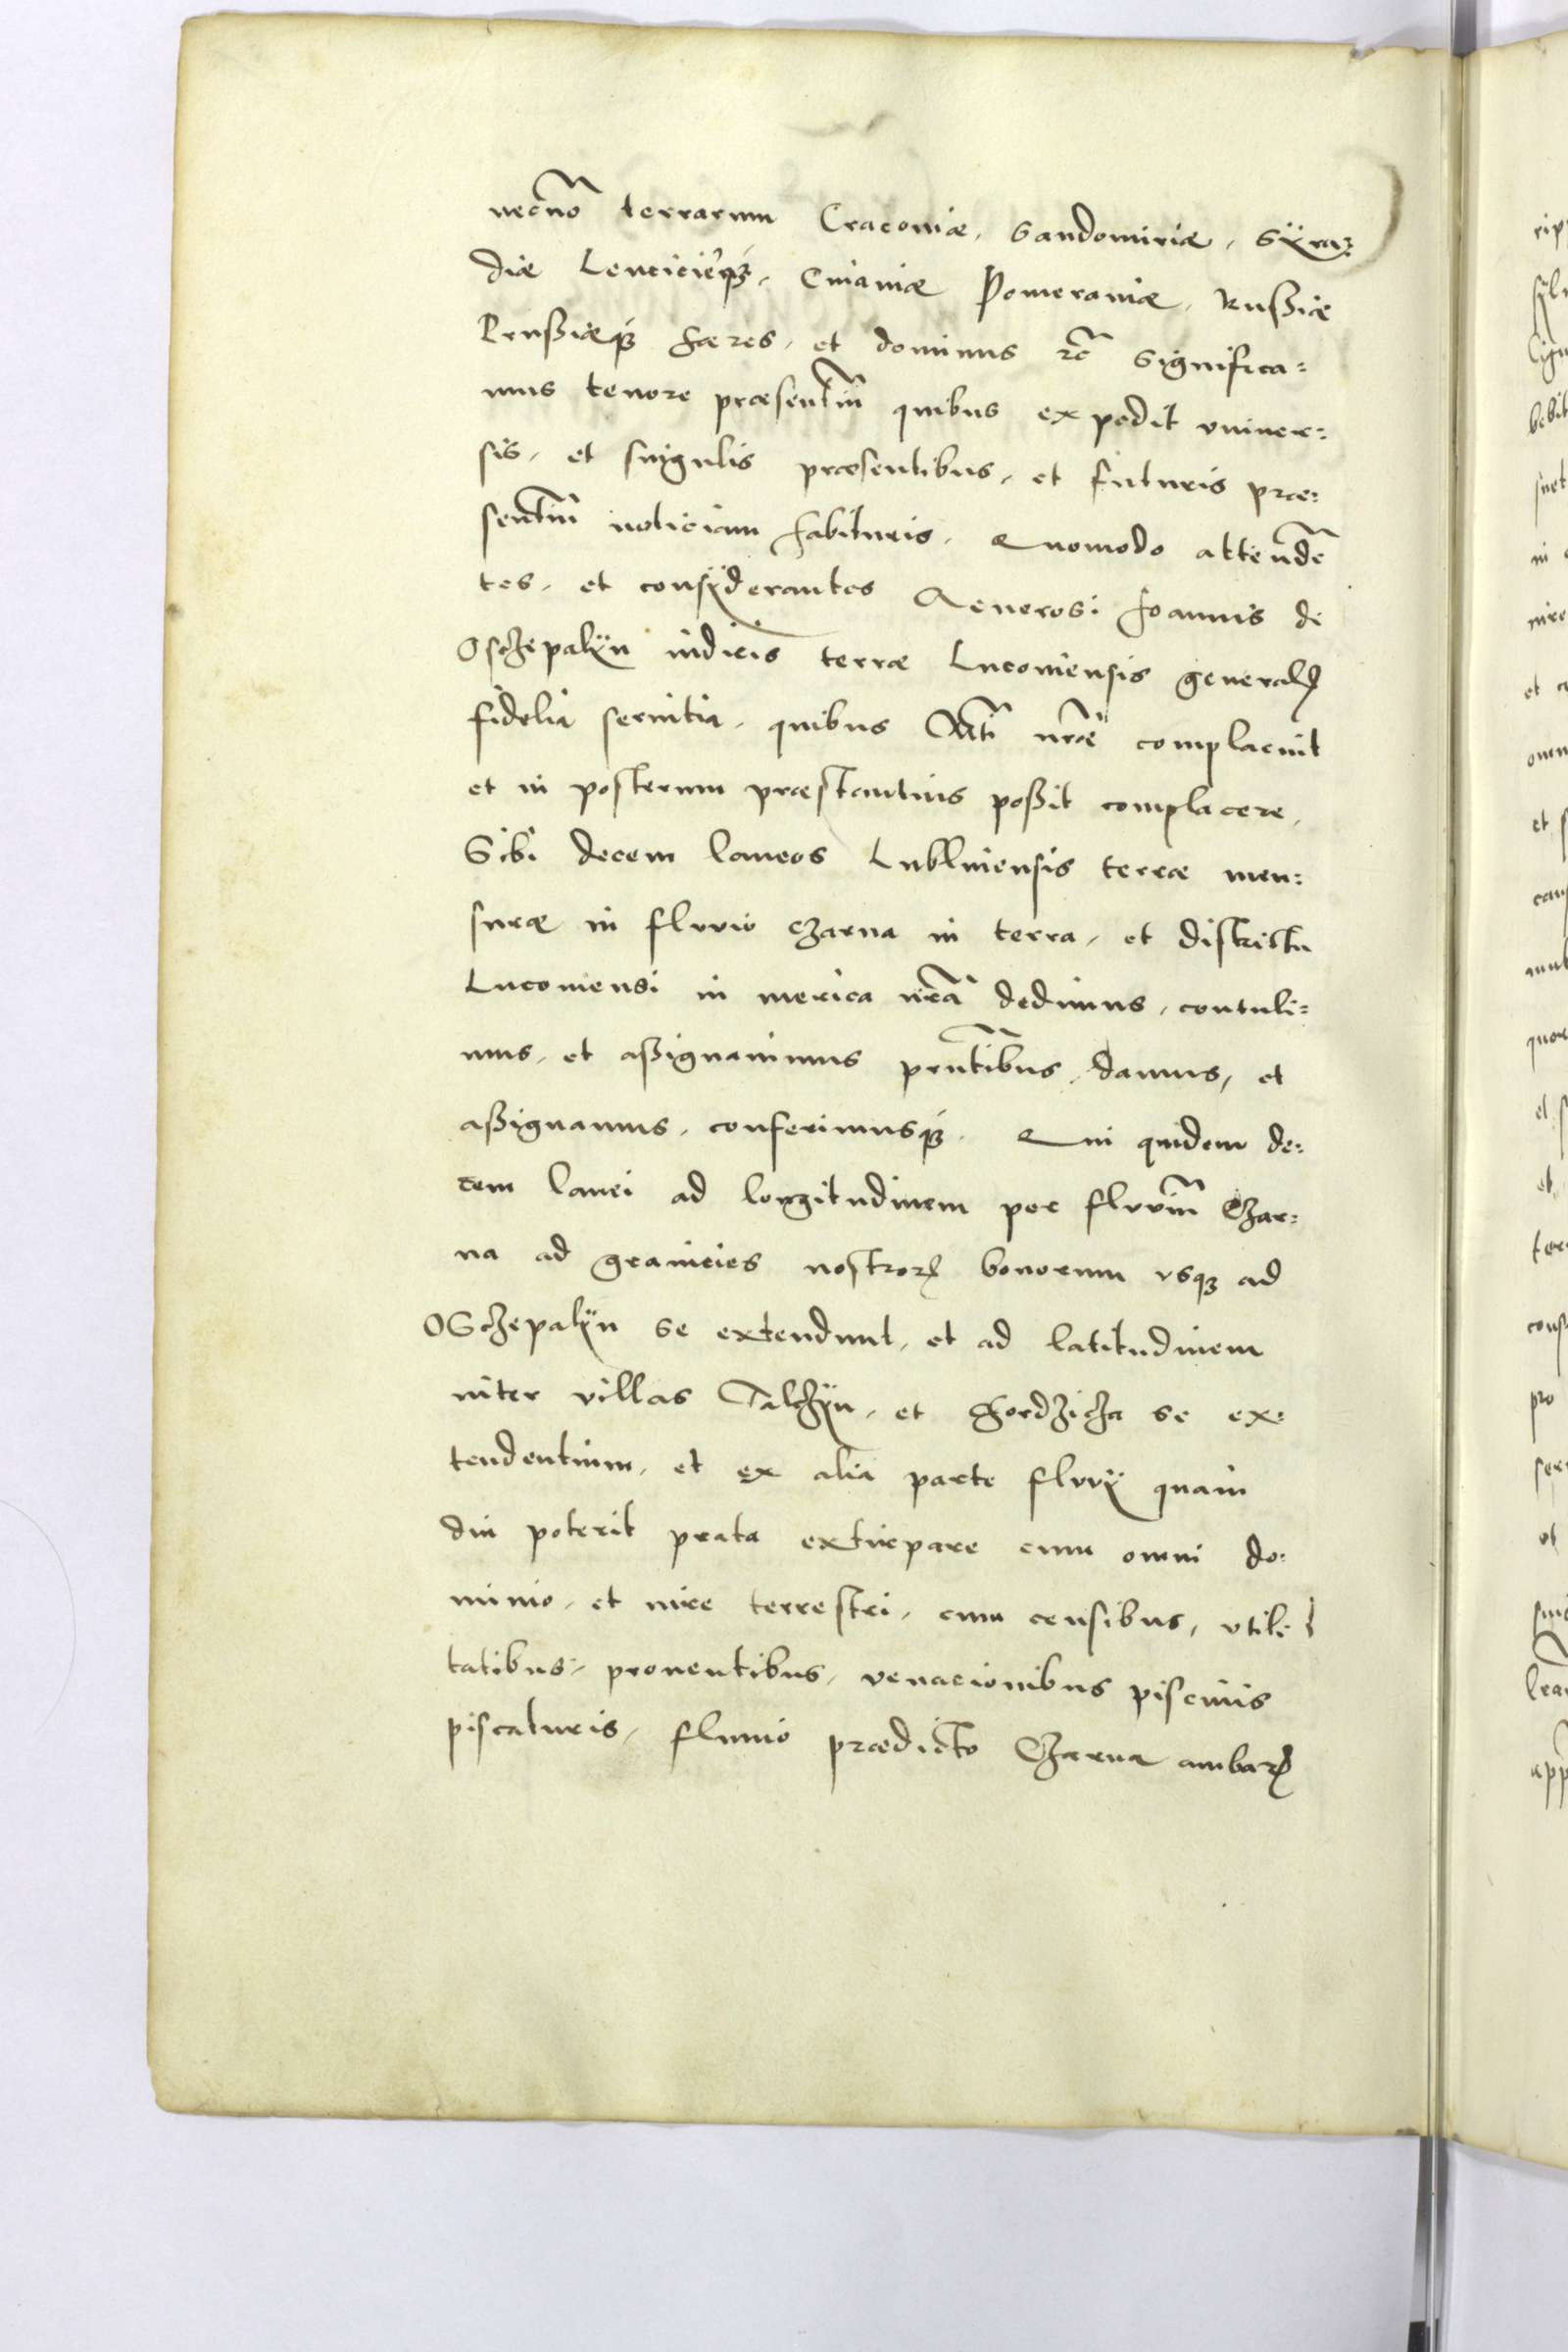 necno͂ terrarum Craconiæ, Sandomiriæ, Sÿra=
diæ Lenciciéq́ꝫ, Cuiauiæ Pomeraniæ, Rußiæ
Prußiæq́ꝫ hæres, et dominus rc̃ significa=
mus tenore præsentiũ quibus expedit vniuer=
sis, et singulis præsentibus, et futuris præ=
sentiũ noticiam habituris. Quomodo attende͂
tes, et consÿderantes Generosi Joannis de
Oschzepalÿn iudicis terræ Lucouiensis generalꝭ
fidelia seruitia, quibus Mti͂ nr̃æ complacuit
et in posterum præstantius poßit complacere,
Sibi decem laneos Lublinensis terræ men=
suræ in fluuio Czarna in terra, et districtu
Lucouiensi in merica nr̃a dedimus, contuli=
mus, et aßignauimus prñtibus, damus, et
aßignamus, conferimusq́ꝫ. Qui quidem de=
cem lanei ad longitudinem per fluuiũ Czar=
na ad granicies nostrorꝭ bonorum vsqꝫ ad
Oschzepalÿn se extendunt, et ad latitudinem
inter villas Talchÿn, et Hordzicha se ex=
tendentium, et ex alia parte fluuÿ quam
diu poterit prata extirpare cum omni do=
minio, et iure terrestri, cum censibus, vtili
tatibus, prouentibus, venacionibus piscinis
piscaturis, fluuio prædicto Czarna ambarꝭ